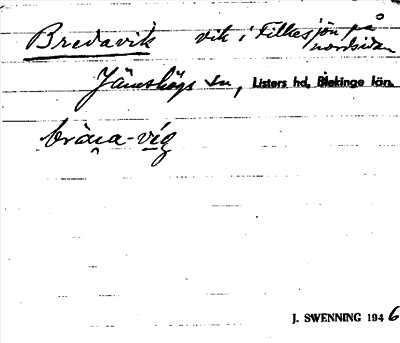 Bredavik vik i Filkesjön på
nordsidan
Jämshögs sn, Listers hd, Blekinge län.
bràɹa-vig
J. SWENNING 1946